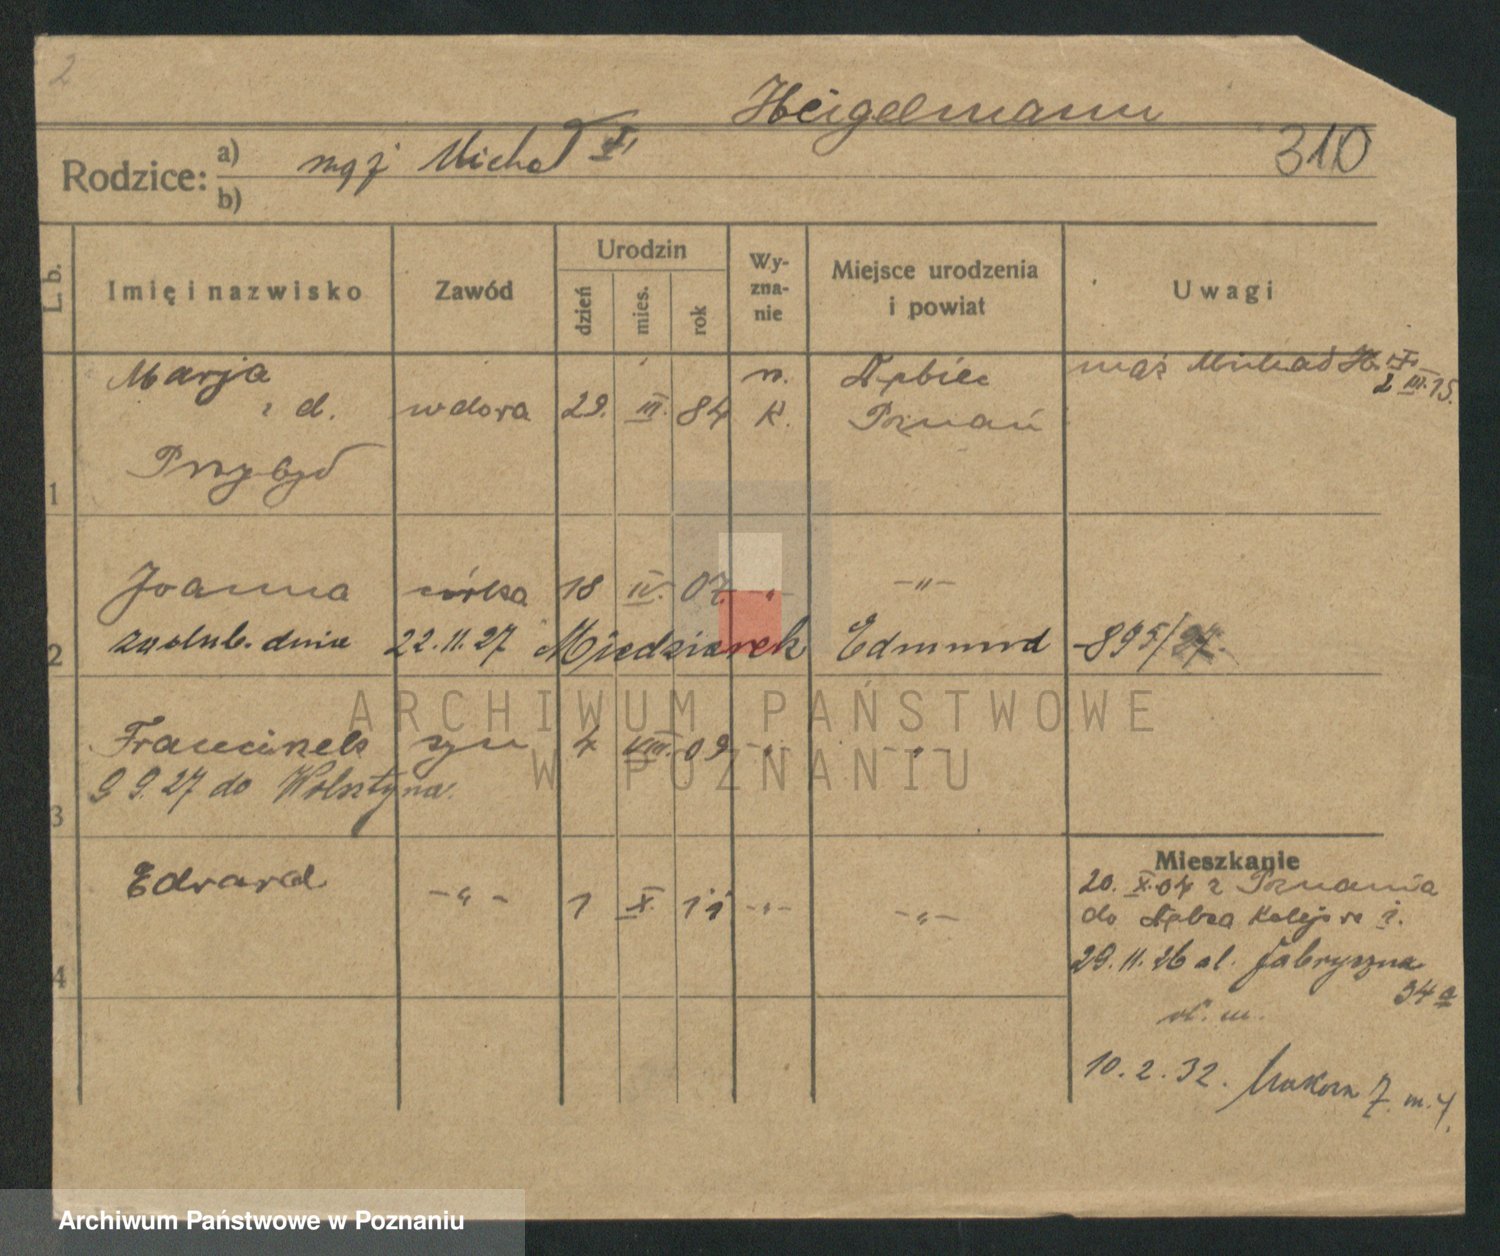 2
Heigelmann
310
Rodzice:
a) mąż Michał
b)
L. b.
Imię i nazwisko
Zawód
Urodzin
dzień
mies.
rok
Wy-
zna-
nie
Miejsce urodzenia
i powiat
Uwagi
1
Marja
z d.
Przybył
wdowa
29. III. 84
rz.
K.
Poznań
mąż Michał H.
2 III. 15.
2
Joanna córka 18 IV. 07. -"- -"-
zaślub. dnia 22.11.27 Miedziarek Edmund -895/27.
3
Franciszek syn 4 VIII. 09 -"- -"-
9 9.27 do Wolsztyna.
4
Edward -"- 1 X. 11 -"- -"-
Mieszkanie
20. X.04 z Poznania
do
29.11.26 ul. Fabryczna
34a
10.2.32. 7 m. 4.
ARCHIWUM PAŃSTWOWE
W POZNANIU
Archiwum Państwowe w Poznaniu